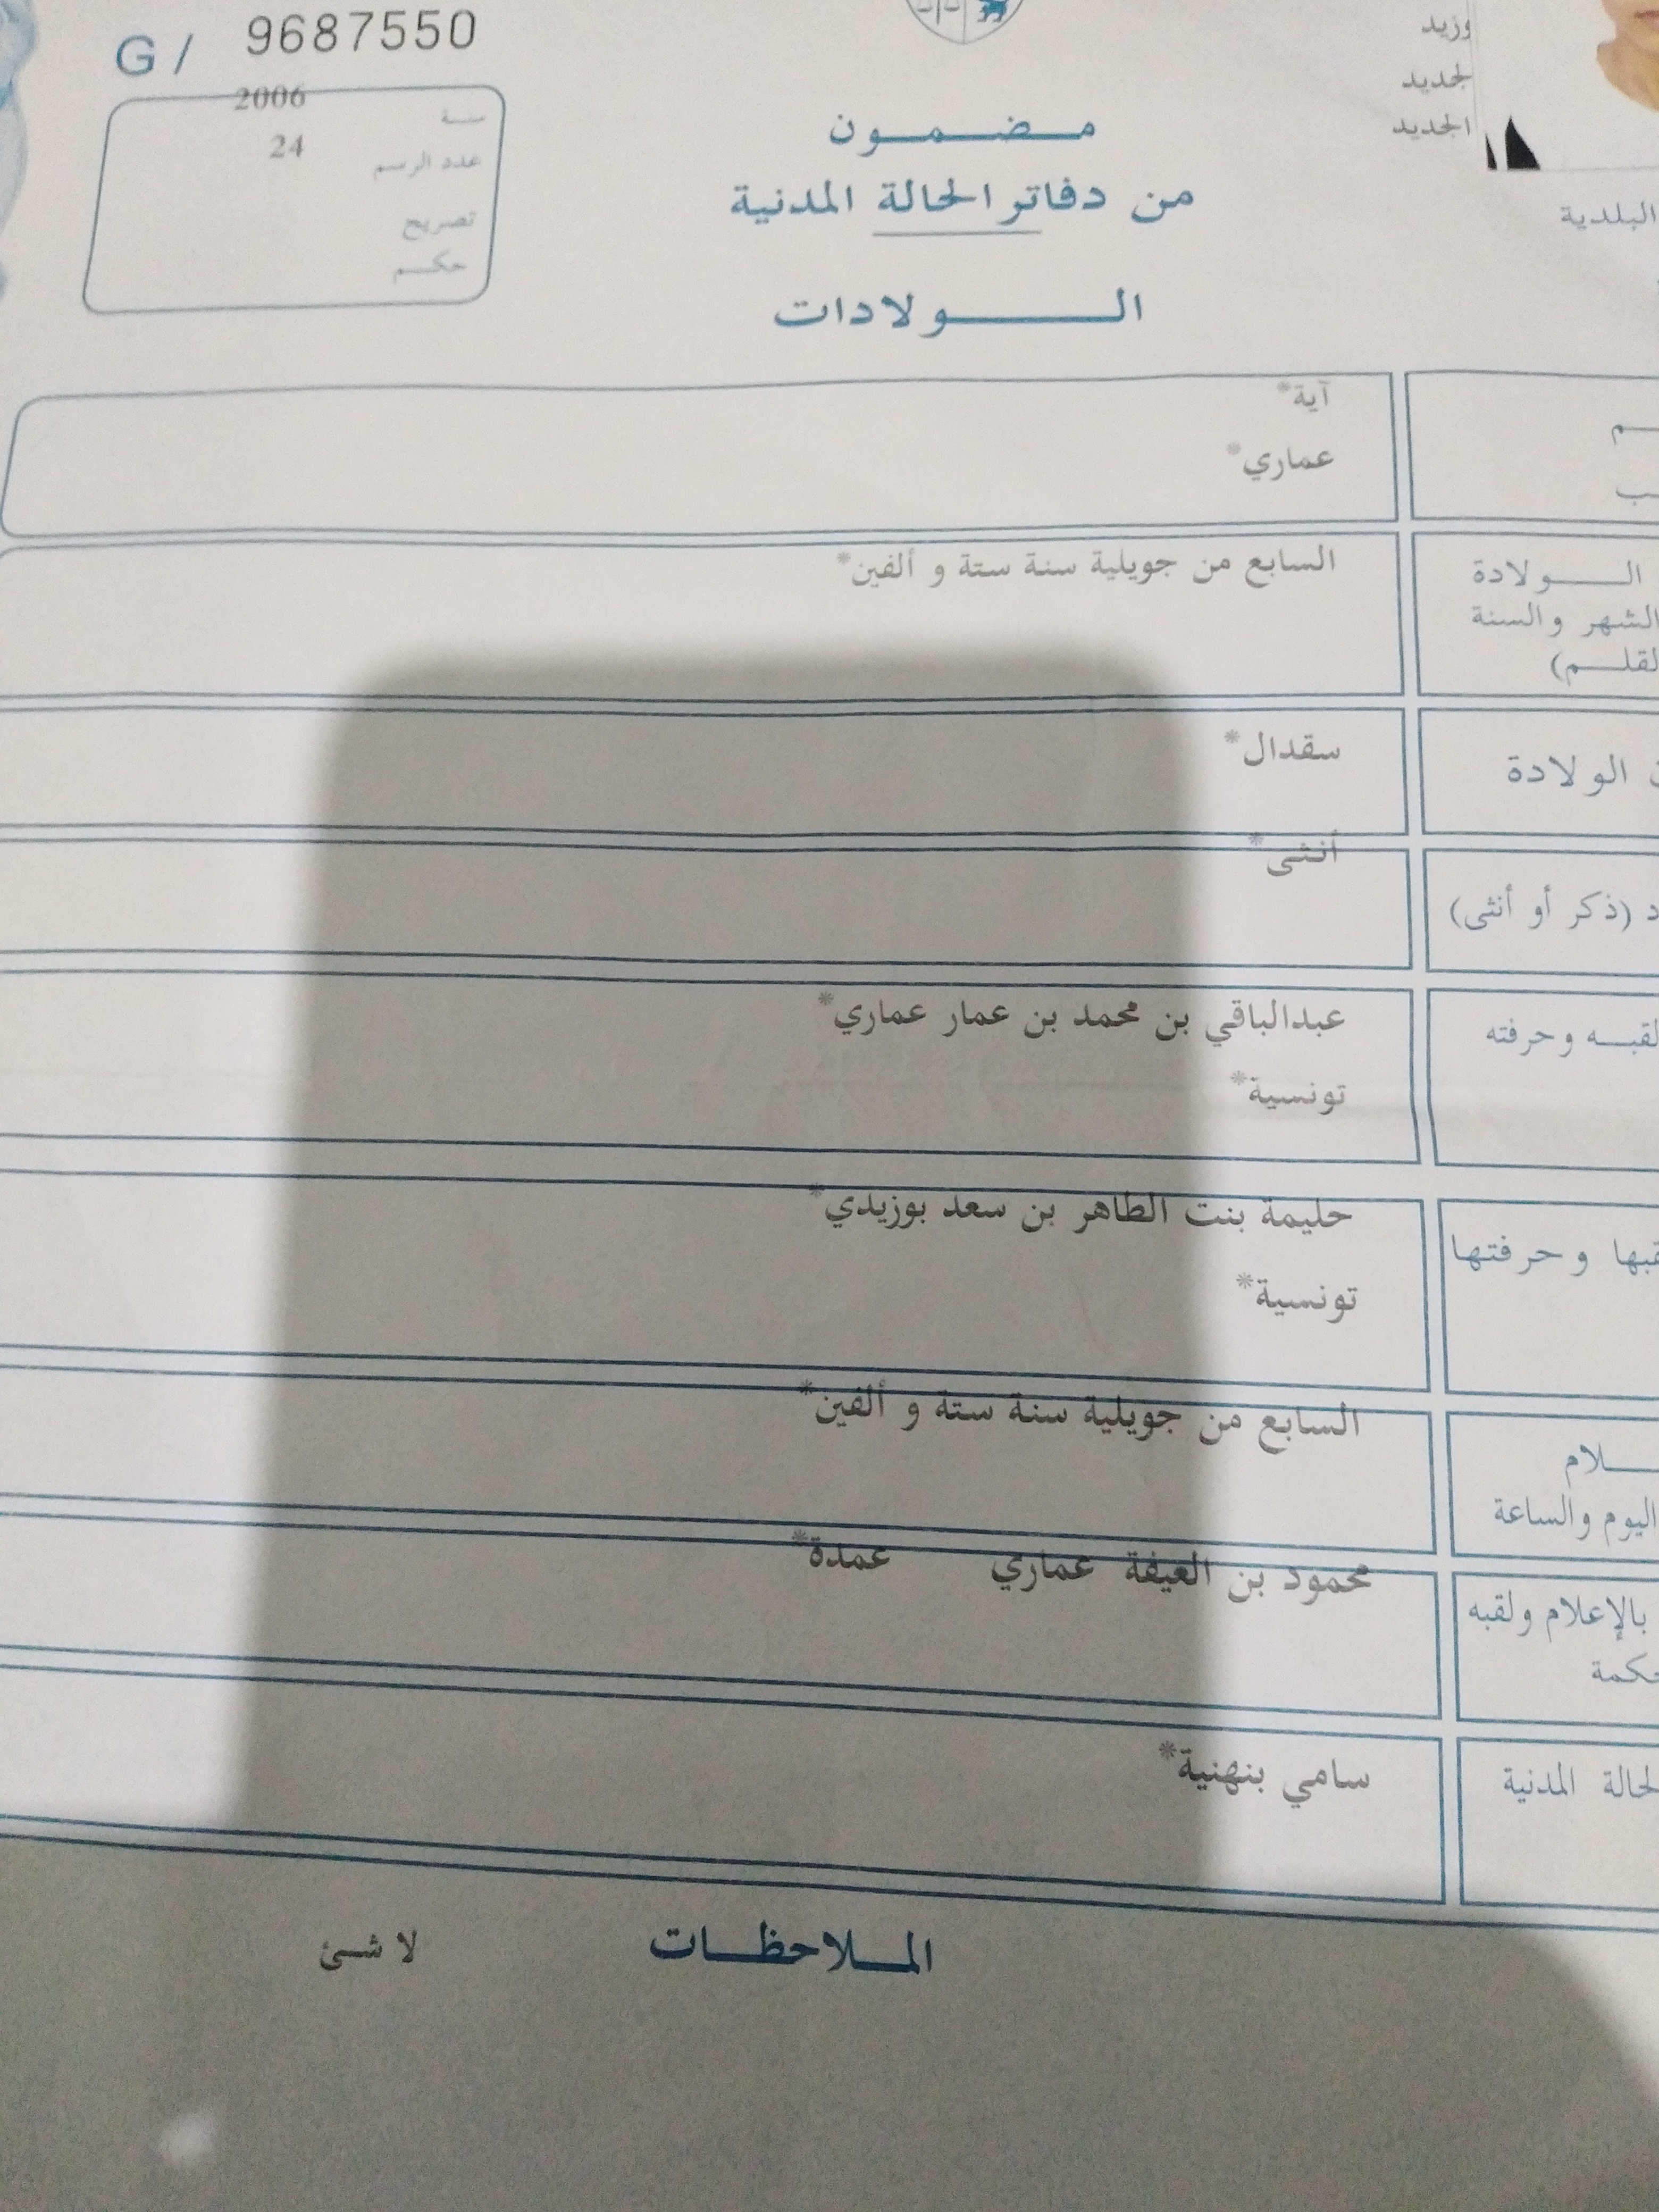 G / 9687550
وزيد
لجديد
الجديد
البلدية
سنة 2006
عدد الرسم 24
تصريح
حكم
مضمون
من دفاتر الحالة المدنية
الولادات
آية*
عماري*
الولادة
الشهر والسنة
لقلم)
السابع من جويلية سنة ستة و ألفين*
الولادة
سقدال*
د (ذكر أو أنثى)
أنثى*
لقبه وحرفته
عبدالباقي بن محمد بن عمار عماري*
تونسية*
قبها وحرفتها
حليمة بنت الطاهر بن سعد بوزيدي*
تونسية*
لام
اليوم والساعة
السابع من جويلية سنة ستة و ألفين*
بالإعلام ولقبه
حكمة
محمود بن العيفة عماري عمدة*
لحالة المدنية
سامي بنهنية*
الملاحظات لا شئ